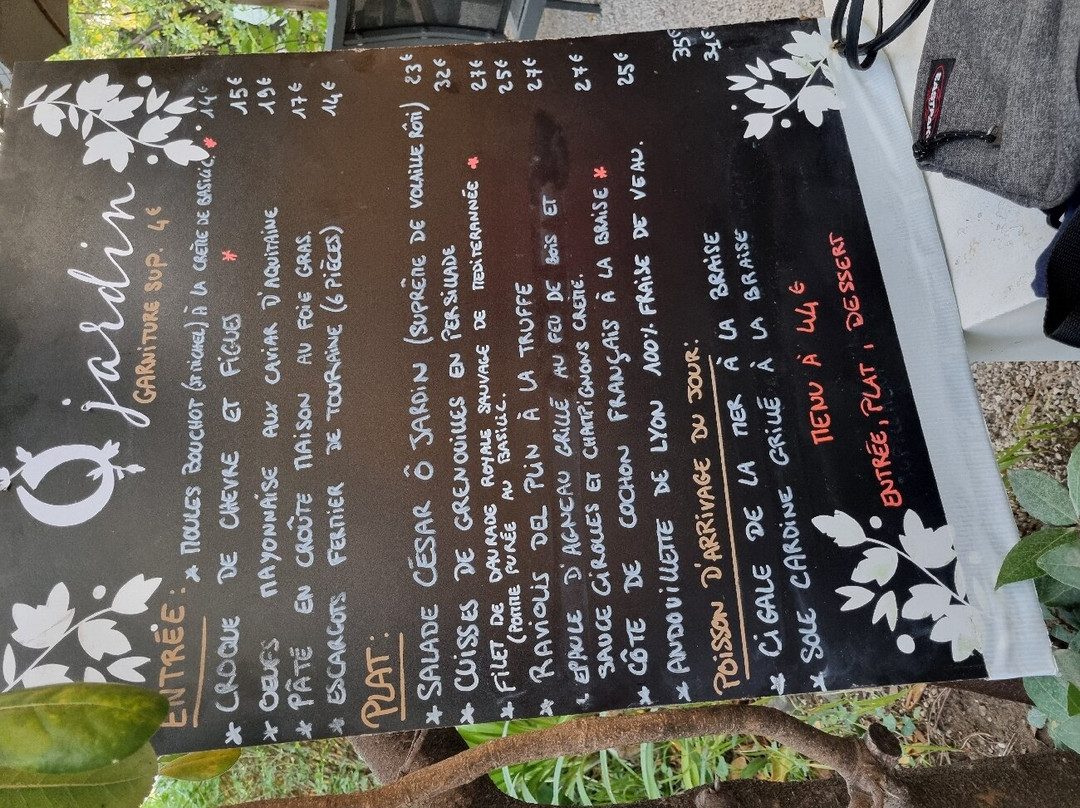 Ô jardin
GARNITURE SUP. 4€
ENTRÉE: * MOULES BOUCHOT (ST MICHEL) À LA CRÈME DE BASILIC * 14€
* CROQUE DE CHEVRE ET FIGUES * 15€
* OEUFS MAYONNAISE AUX CAVIAR D'AQUITAINE 19€
* PÂTÉ EN CROÛTE MAISON AU FOIE GRAS. 17€
* ESCARGOTS FERMIER DE TOURAINE (6 PIÈCES) 14€
PLAT:
* SALADE CÉSAR Ô JARDIN (SUPRÊME DE VOLAILLE RÔTI) 23€
* CUISSES DE GRENOUILLES EN PERSILLADE 32€
* FILET DE DAURADE ROYALE SAUVAGE DE MEDITERANNÉE * 27€
(POMME PURÉE AU BASILIC. 25€
* RAVIOLIS DEL PLIN À LA TRUFFE 27€
* EPAULE D'AGNEAU GRILLÉ AU FEU DE BOIS ET 27€
SAUCE GIROLLES ET CHAMPIGNONS CRÈME.
* CÔTE DE COCHON FRANÇAIS À LA BRAISE * 25€
* ANDOUILLETTE DE LYON 100% FRAISE DE VEAU.
POISSON D'ARRIVAGE DU JOUR: 35€
* CIGALE DE LA MER À LA BRAISE 34€
* SOLE CARDINE GRILLÉ À LA BRAISE
MENU À 44€
ENTRÉE, PLAT, DESSERT
EASTPAK